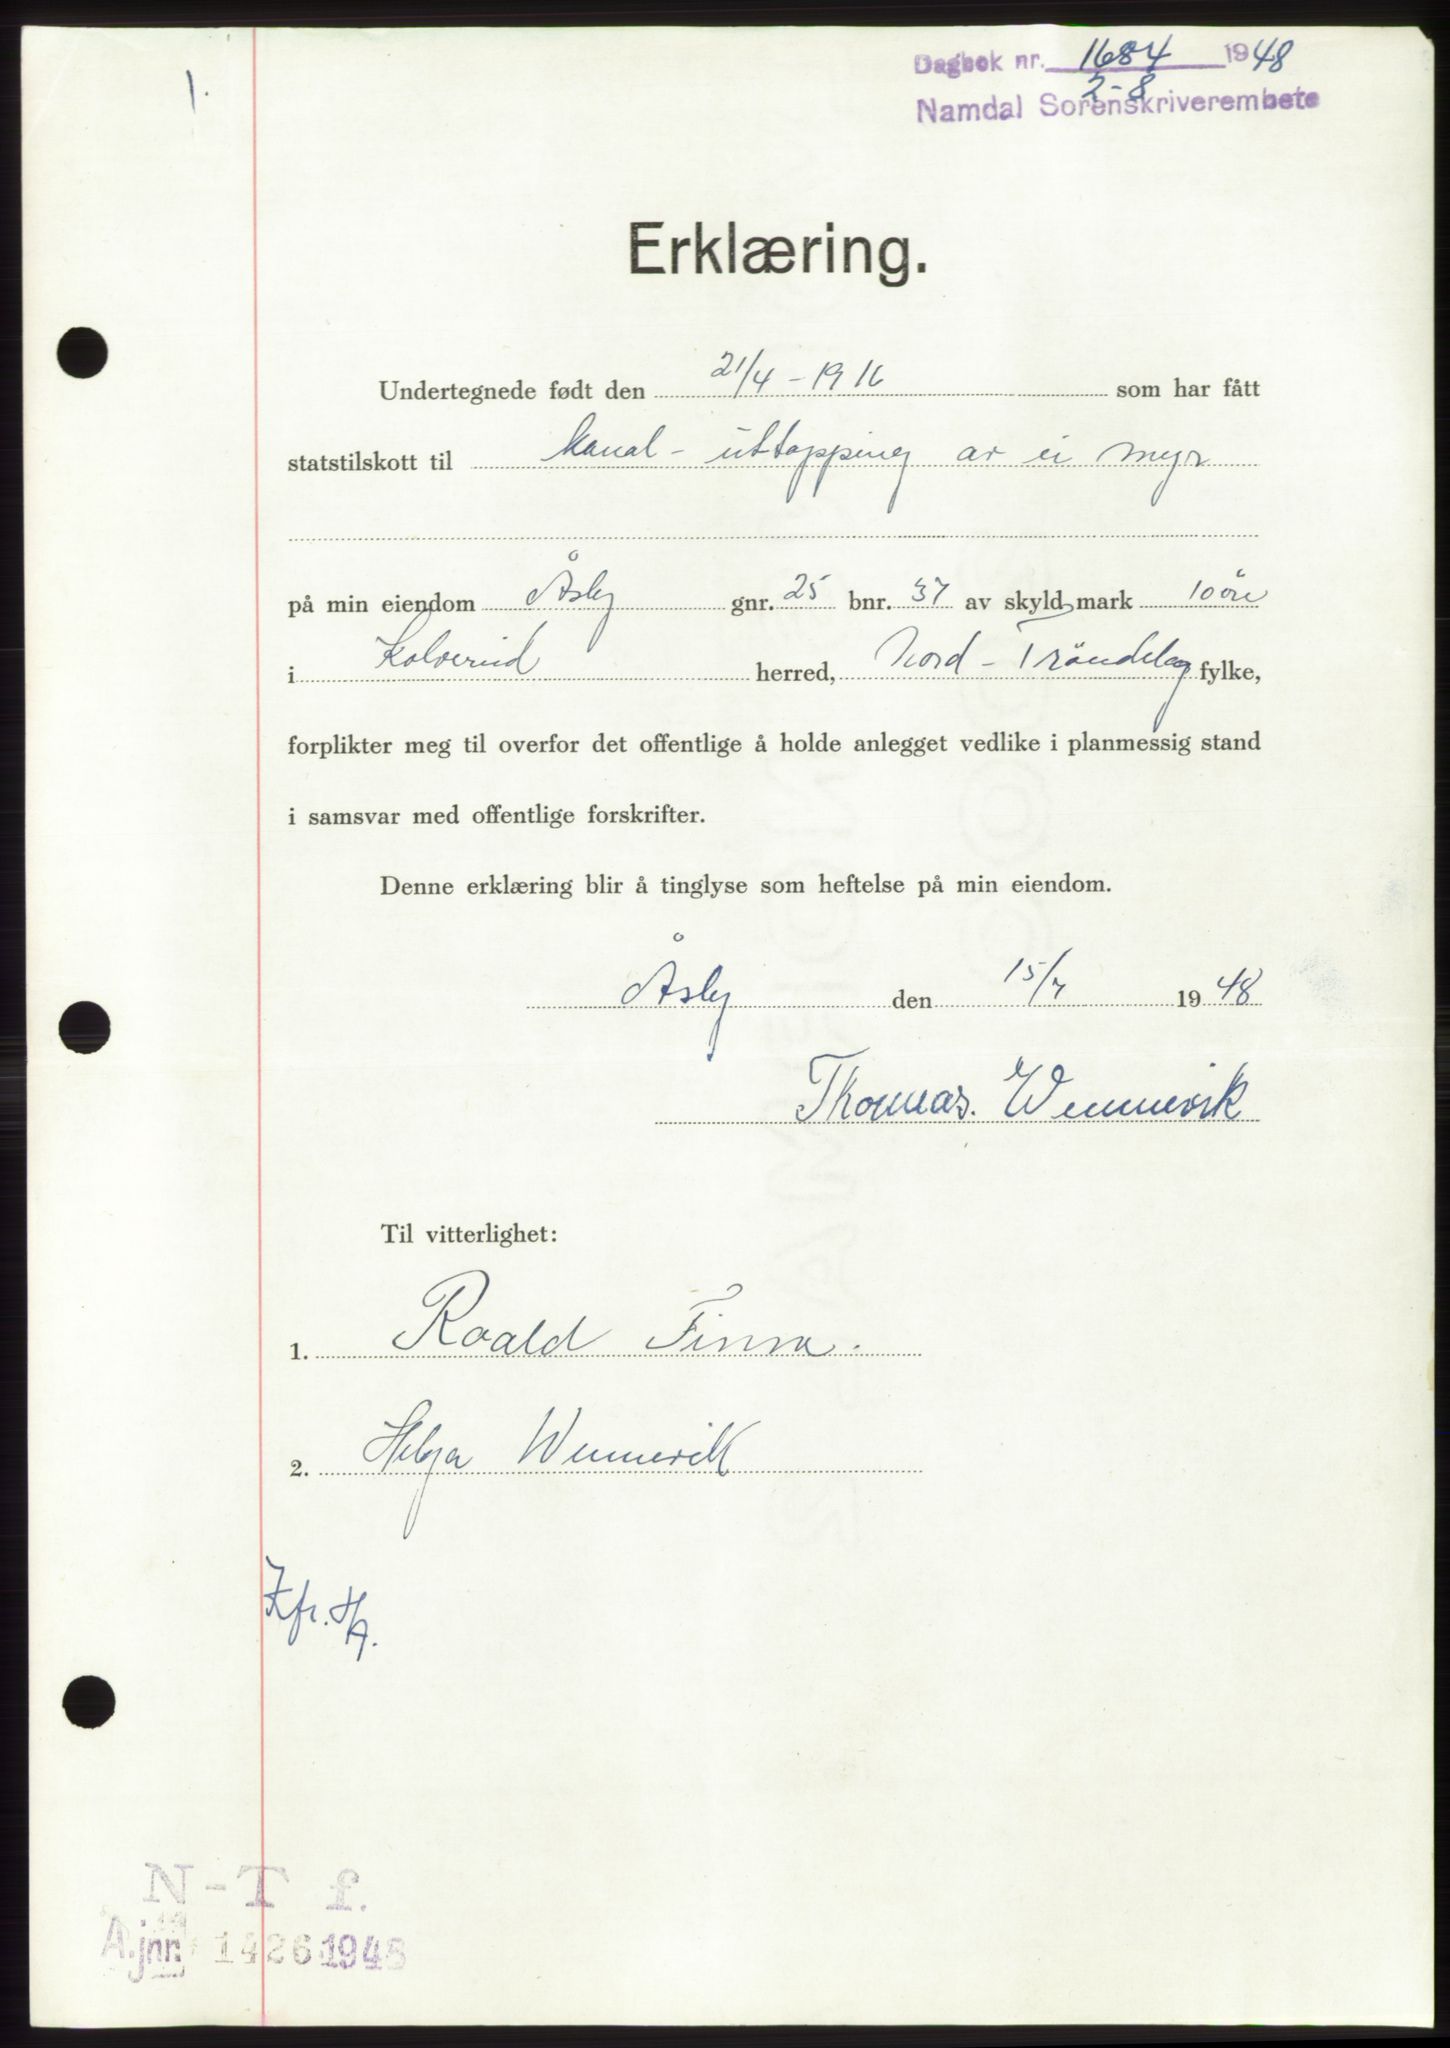 1.
Dagbok nr. 1684 1948
2-8
Namdal Sorenskriverembete
Erklæring.
Undertegnede født den 21/4 - 1916 som har fått
statstilskott til kanal - uttapping av ei myr
på min eiendom Åsly gnr. 25 bnr. 37 av skyld mark 10 öre
i Kolvereid herred, Nord - Tröndelag fylke,
forplikter meg til overfor det offentlige å holde anlegget vedlike i planmessig stand
i samsvar med offentlige forskrifter.
Denne erklæring blir å tinglyse som heftelse på min eiendom.
Åsly den 15/7 1948
Thomas. Wennevik
Til vitterlighet:
1. Roald Finne.
2. Helga Wennevik
Kfr. H/A.
N-T f.
Å.jnr. 1426 1948